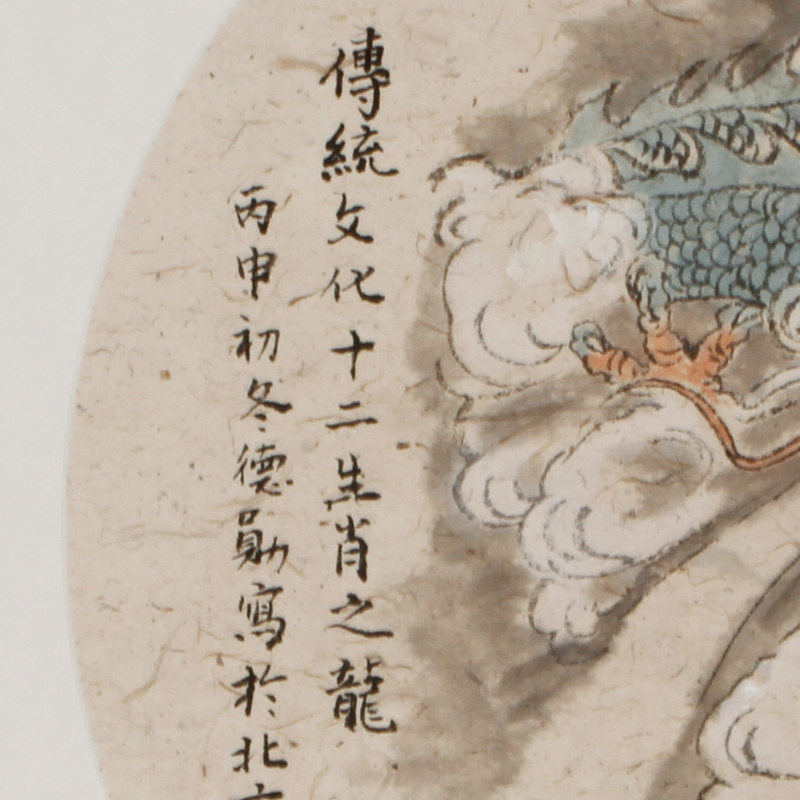 傳統文化十二生肖之龍
丙申初冬德勛寫於北